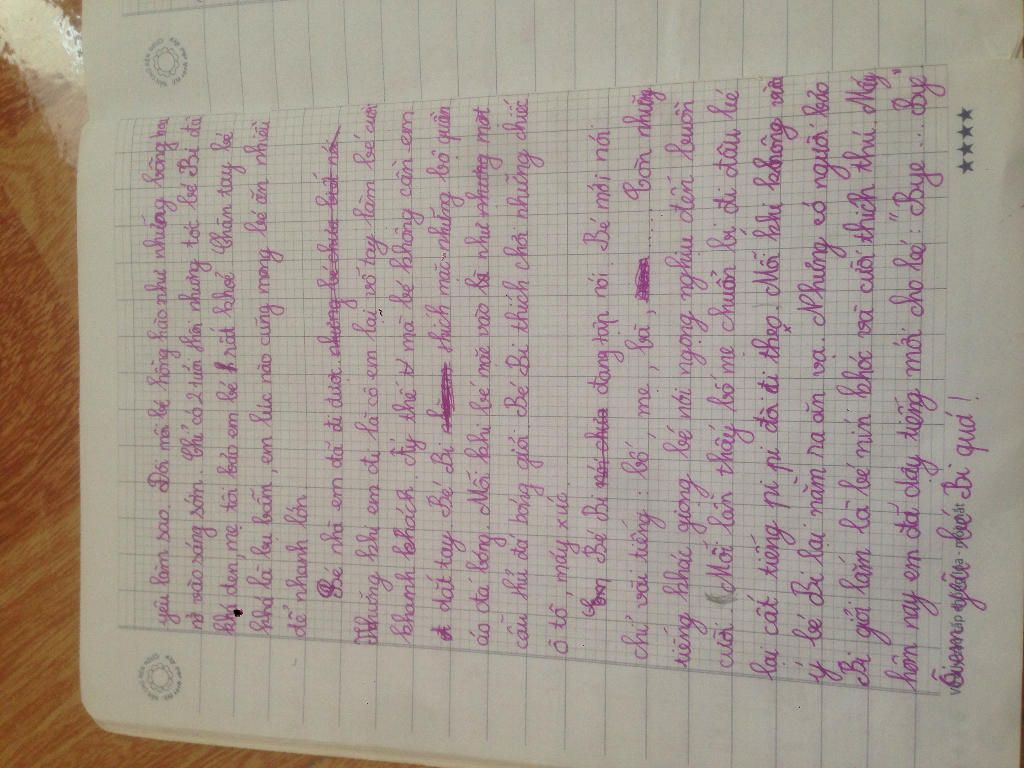 yêu làm sao. Đôi môi bé hồng hào như những bông hoa
vào sáng sớm. Chỉ có 2 tuổi thôi nhưng tóc bé Bi đã
đen, mẹ tôi bảo em bé rất khoẻ. Chân tay bé
khá là bụ bẫm, em lúc nào cũng mong bé ăn nhiều
để nhanh lớn.
Bé nhà em đã đi được nhưng bé chưa biết nói.
Những khi em đi là cô em lại vỗ tay làm bé cười
khanh khách. Ấy thế mà bé không cần em
dắt tay. Bé Bi thích mặc những bộ quần
áo đá bóng. Mỗi khi bé mặc vào như một
cầu thủ đá bóng giỏi. Bé Bi thích chơi những chiếc
ô tô, máy xúc.
Bé Bi đang tập nói. Bé mới nói
chỉ vài tiếng: bố, mẹ, bà, ...... Còn những
tiếng khác giọng bé nói ngọng nghịu đến buồn
cười. (Mỗi lần thấy bố mẹ chuẩn bị đi đâu bé
lại cất tiếng pi pi đòi đi theo.) Mỗi khi không vừa
ý bé Bi lại nằm ra ăn vạ. Nhưng có người bảo
Bi giỏi lắm là bé nín khóc và cười thích thú. Mấy
hôm nay em đã dạy tiếng mới cho bé: "Bye... Bye"
Ôi em yêu bé Bi quá!